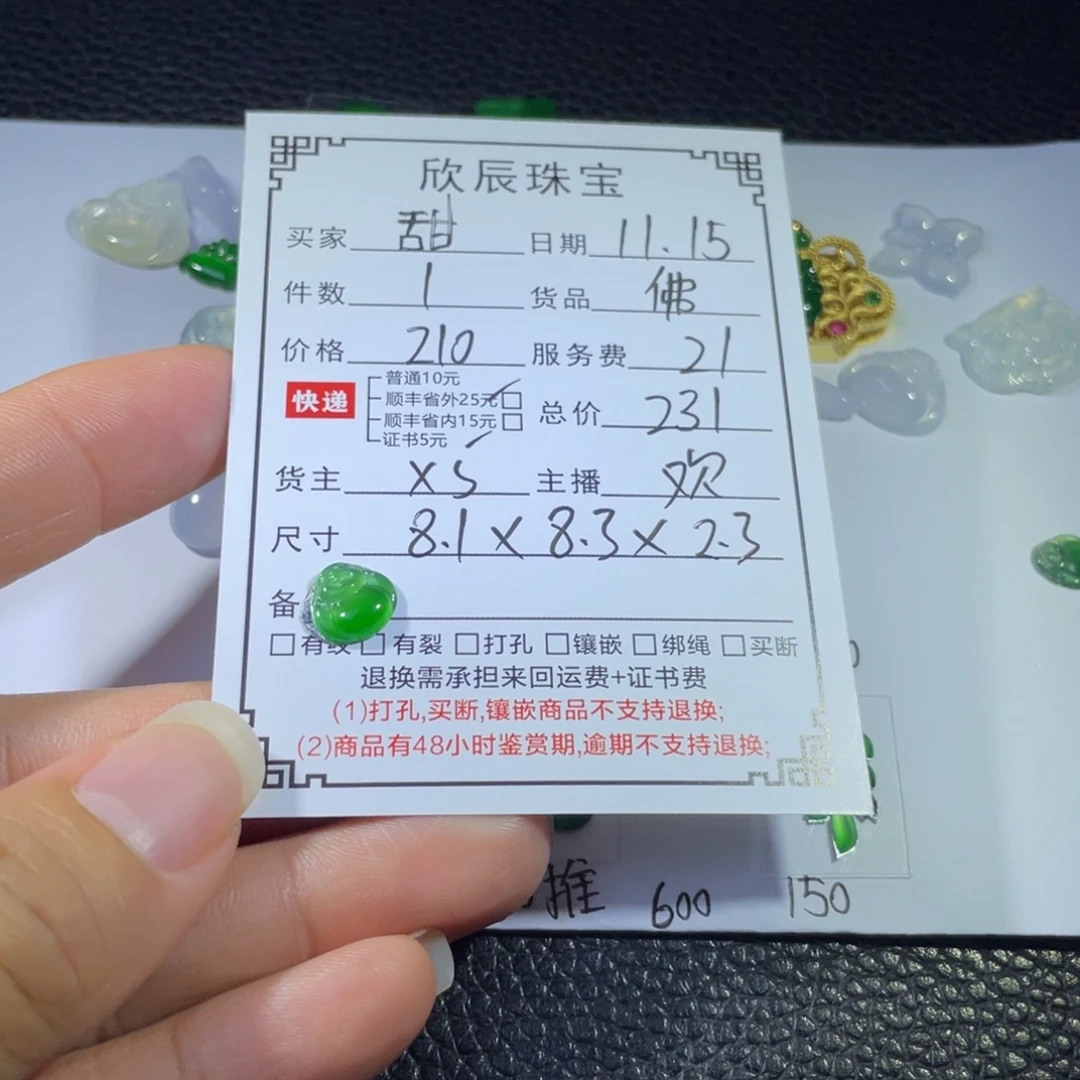 欣辰珠宝
买家 甜 日期 11.15
件数 1 货品 佛
价格 210 服务费 21
快递 普通10元 ✓
顺丰省外25元 □
顺丰省内15元 □
证书5元 ✓
总价 231
货主 XS 主播 欢
尺寸 8.1×8.3×2.3
备
□有纹 □有裂 □打孔 □镶嵌 □绑绳 □买断
退换需承担来回运费+证书费
(1)打孔,买断,镶嵌商品不支持退换;
(2)商品有48小时鉴赏期,逾期不支持退换;
推 600 150